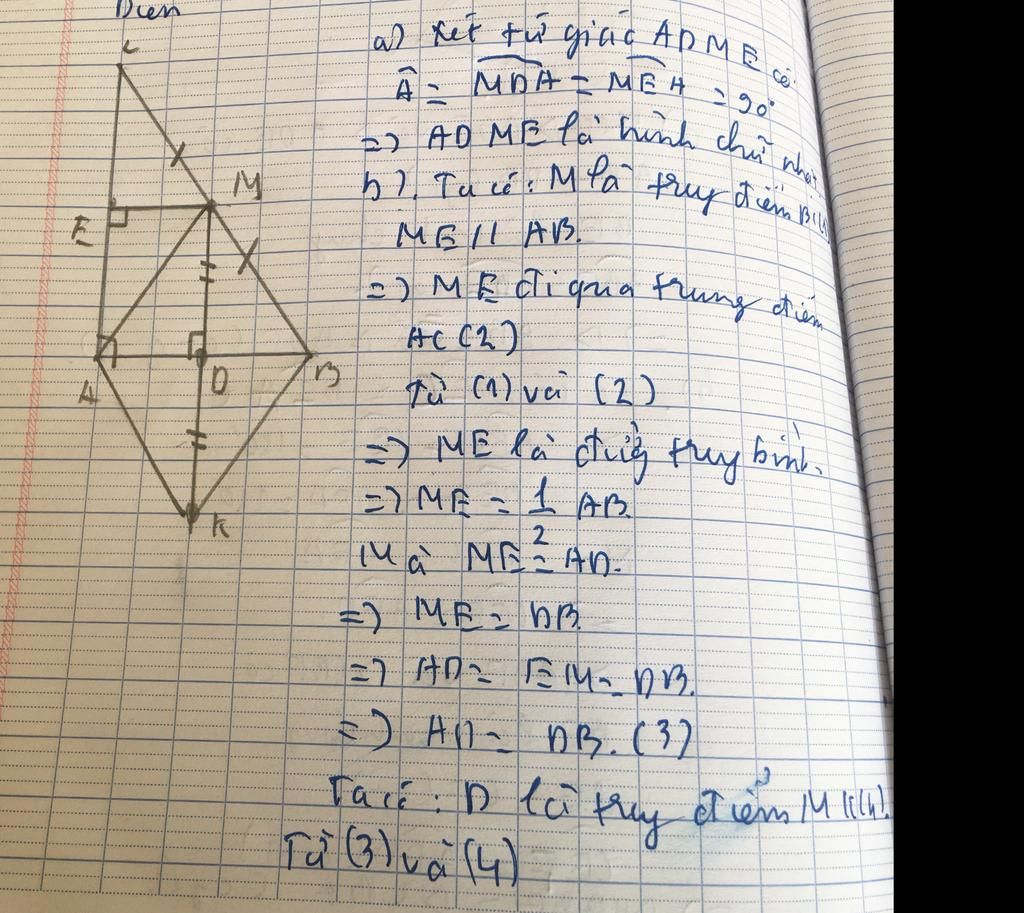 a) Xét tứ giác ADME có
Â = MDA = MEA = 90°
=> ADME là hình chữ nhật
b). Ta có: M là truy điểm BC(1)
ME // AB.
=> ME đi qua trung điểm
AC (2)
Từ (1) và (2)
=> ME là đường truy bình.
=> ME = 1/2 AB.
Mà ME = AD.
=> ME = DB.
=> AD = EM = DB.
=> AD = DB. (3)
Ta có: D là truy điểm MK(4).
Từ (3) và (4)
C
M
E
A
D
B
K